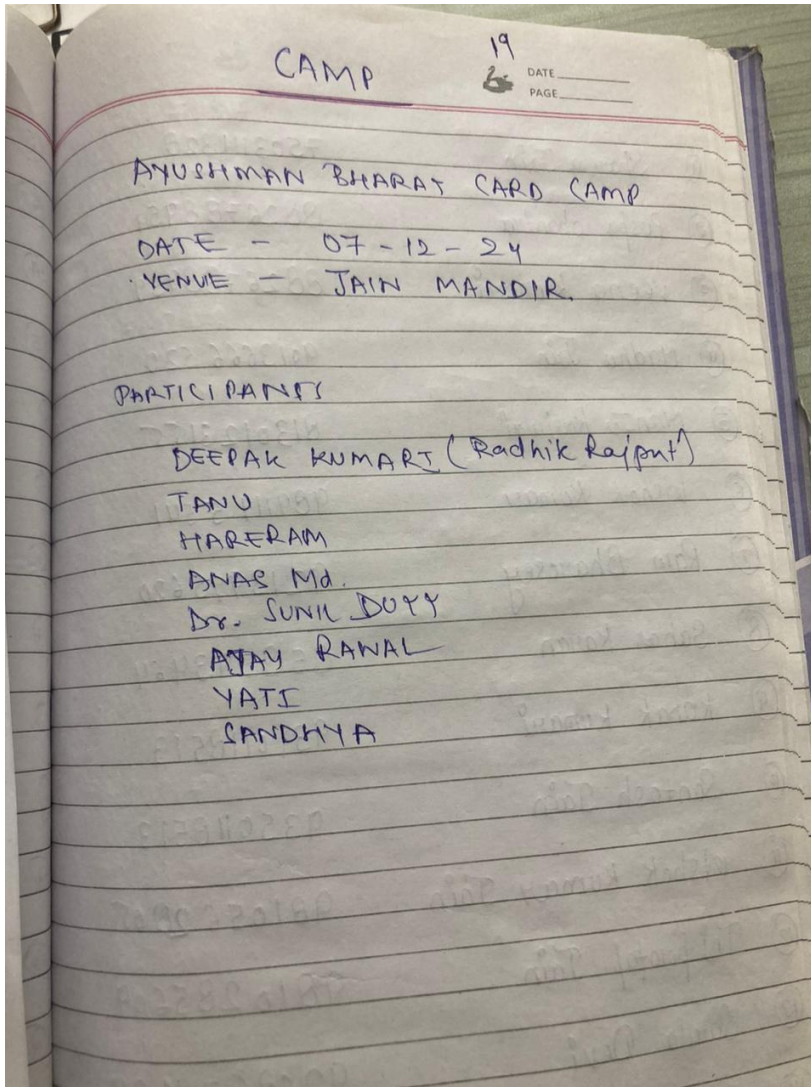 19
CAMP
DATE
PAGE
AYUSHMAN BHARAT CARD CAMP
DATE - 07-12-24
VENUE - JAIN MANDIR.
PARTICIPANTS
DEEPAK KUMARI (Radhik Rajput)
TANU
HARERAM
ANAS Md.
Dr. SUNIL DUTT
AJAY RAWAL
YATI
SANDHYA